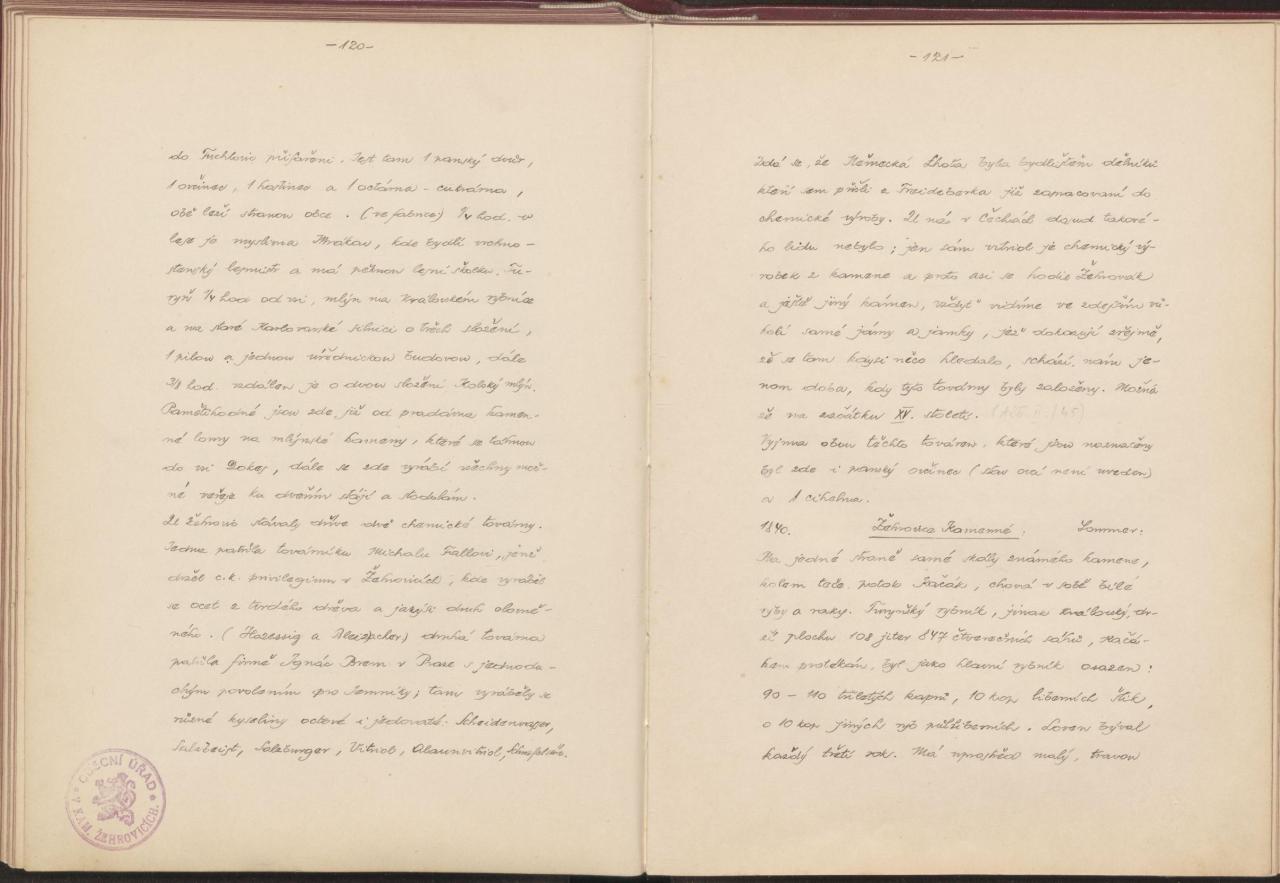 -120-
do Tuchlovic přifařeni. Jest tam 1 panský dvůr,
1 ovčinec, 1 hostinec a 1 octárna - cukrárna,
obě leží stranou obce. (ve fabrice) 1/4 hod. v
lese je myslivna Mrákav, kde bydlí vrchno-
stenský lesmistr a má pěknou lesní školku. Tu-
ryň 1/4 hod od vsi, mlýn na Královském rybníce
a na staré Karlovarské silnici o třech složení,
1 pilou a jednou úřednickou budovou, dále
3/4 hod. vzdálen je o dvou složení Kolský mlýn.
Pamětihodné jsou zde již od pradávna kamen-
né lomy na mlýnské kameny, které se lámou
do vsi Dokej, dále se zde vyrábí všechny mož-
né veřeje ku dveřím stájí a stodolám.
U Žehrovic stávaly dříve dvě chemické továrny.
Jedna patřila továrníku Michalu Fallovi, jenž
držel c.k. privilegium v Žehrovicích, kde vyráběl
se ocet z tvrdého dřeva a jakýsi druh olově-
ného. (Hozessig a Bleizucker) druhá továrna
patřila firmě Ignác Brem v Praze s jednodu-
chým povolením pro semníky; tam vyráběly se
různé kyseliny octové i jedovaté: Scheidewasser,
Salzgeist, Salzburger, Vitriol, Alaunvitriol,
OBECNÍ ÚŘAD
V KAM. ŽEHROVICÍCH.
-121-
Zdá se, že Německá Lhota byla bydlištěm dělníků
kteří sem přišli z Freideberka již zapracovaní do
chemické výroby. U nás v Čechách dosud takové-
ho lidu nebylo; jen sám vitriol je chemický vý-
robek z kamene a proto asi se hodil Žehrovák
a ještě jiný kámen, vždyť vidíme ve zdejším vů-
kolí samé jámy a jamky, jež dokazují zřejmě,
že se tam kdysi něco hledalo, schází nám je-
nom doba, kdy tyto továrny byly založeny. Možná
že na začátku XV. století.
Vyjma obou těchto továren, které jsou naznačeny
byl zde i panský ovčinec (stav ovcí není uveden)
a 1 cihelna.
1840. Žehrovice Kamenné. Sommer:
Na jedné straně samé skály známého kamene,
kolem teče potok Kačák, chová v sobě bílé
ryby a raky. Turyňský rybník, jinak královský, dr-
ží plochu 108 jiter 847 čtverečních sáhů, Kačá-
kem protékán, byl jako hlavní rybník osazen:
90 - 110 tříletých kaprů, 10 kop liberních štik,
o 10 kop jiných ryb půlliberních. Loven býval
každý třetí rok. Má uprostřed malý, travou